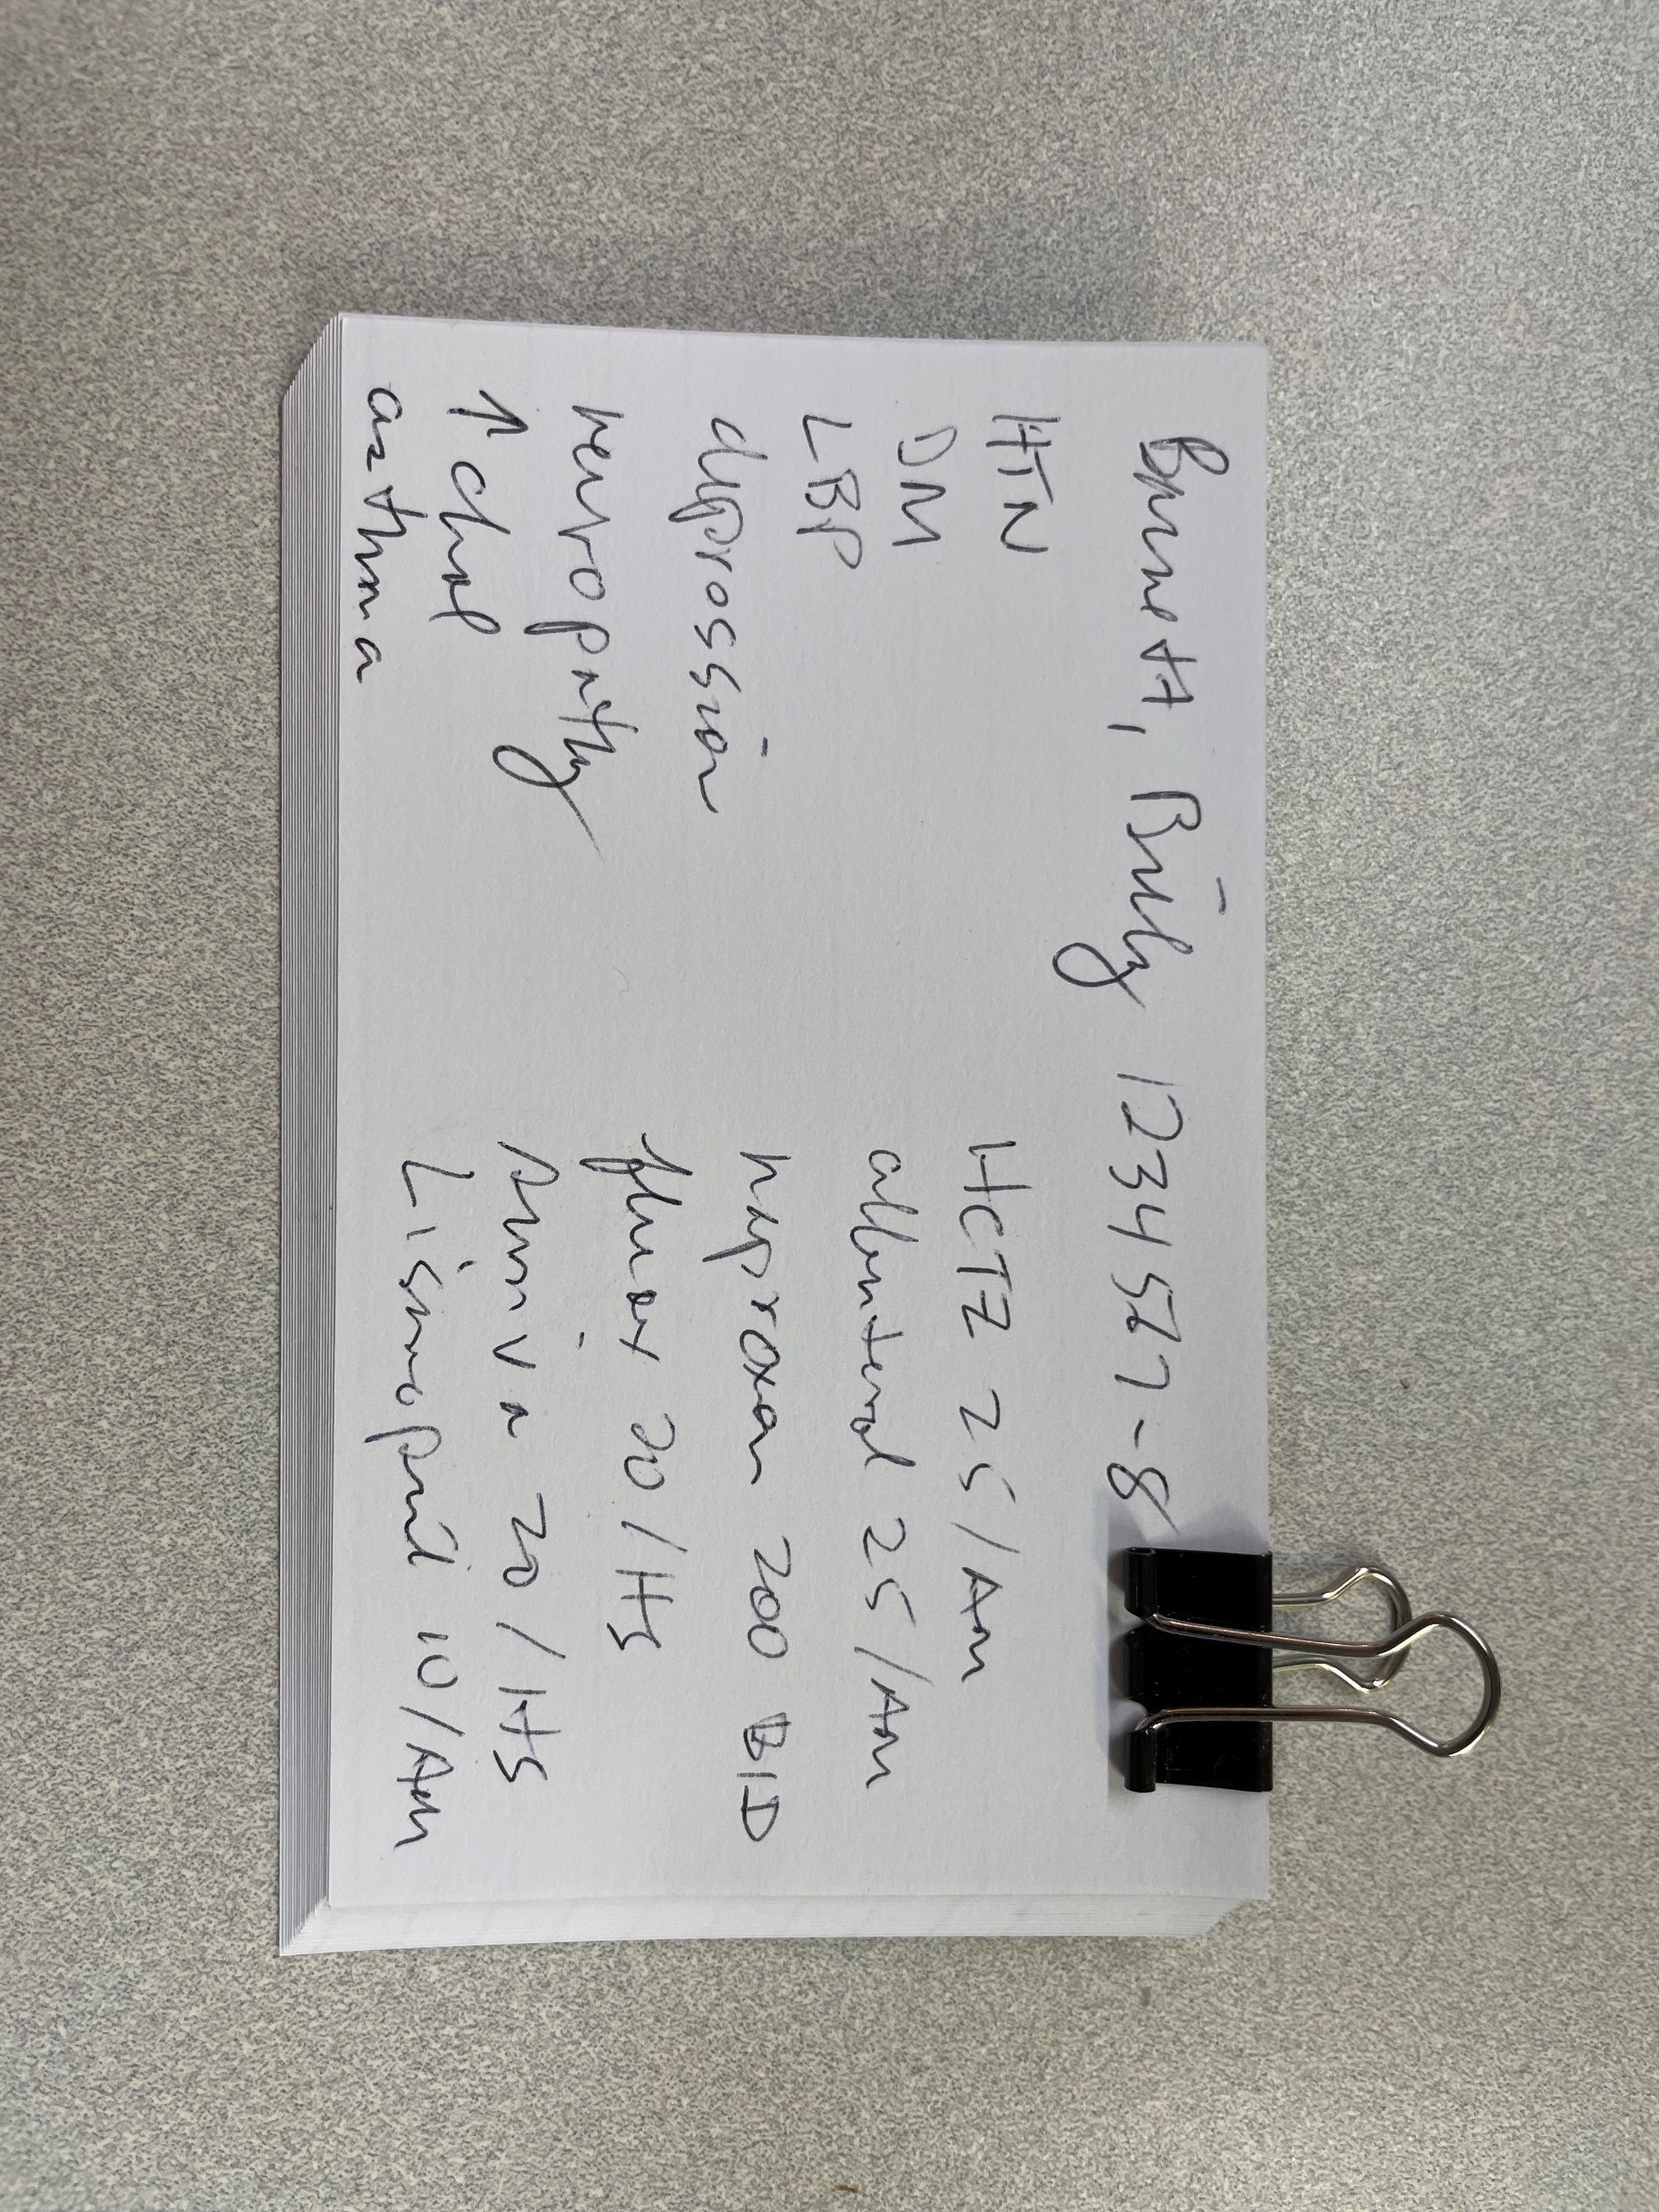 Barnett, Billy 1234567-8
HTN
DM
LBP
depression
neuropathy
↑ chol
asthma
HCTZ 25/AM
albuterol 25/AM
naproxen 200 BID
fluox 20/HS
20/HS
Lisinopril 10/AM